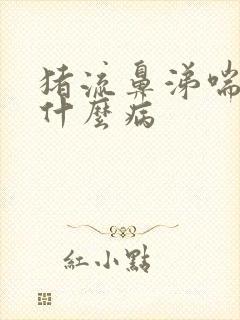 猪流鼻涕喘
什麼病
紅小點